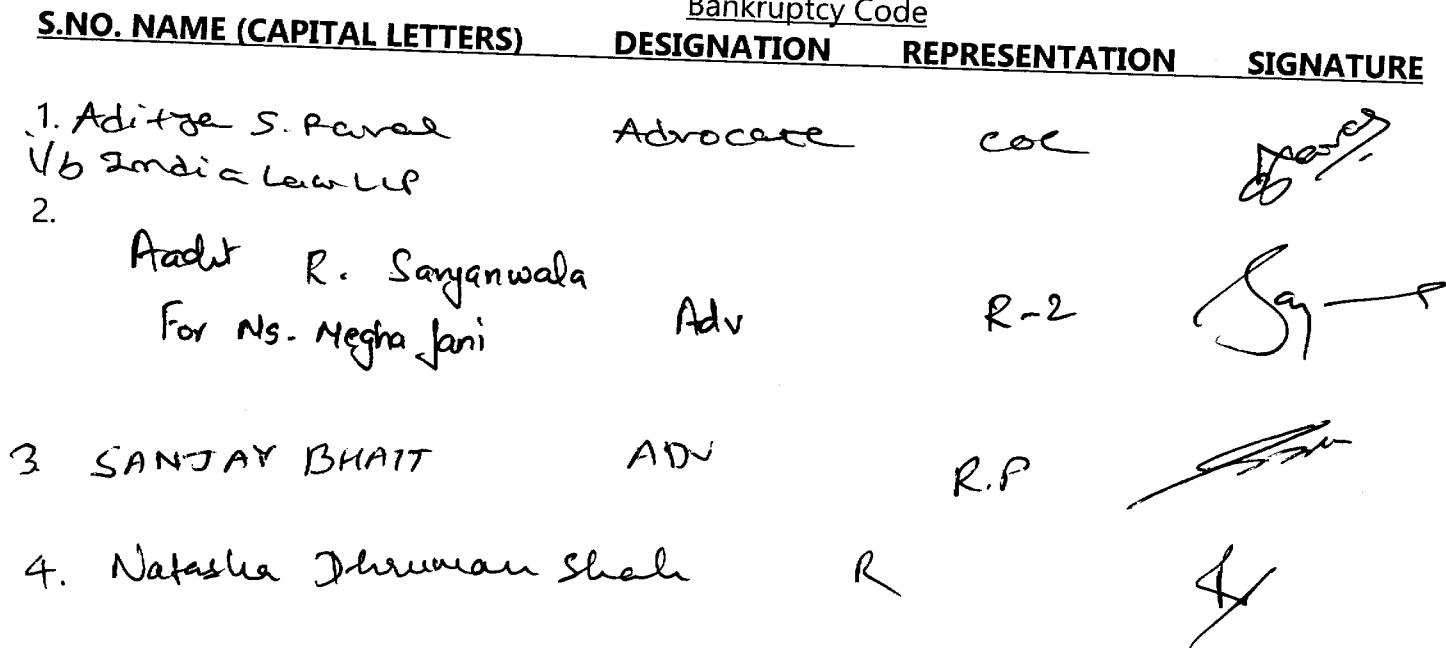 Bankruptcy Code
S.NO. NAME (CAPITAL LETTERS) DESIGNATION REPRESENTATION SIGNATURE
1. Aditya S. Raval Advocate COC
I/b India Law LLP
2.
Aadit R. Sanjanwala
For Ms. Megha Jani Adv R-2
3 SANJAY BHATT ADV R.P
4. Natasha Dhruman Shah R